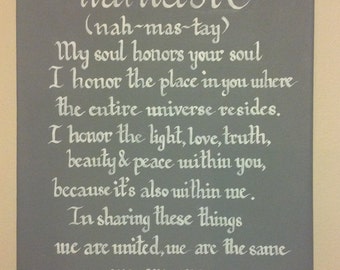 namaste
(nah-mas-tay)
My soul honors your soul
I honor the place in you where
the entire universe resides.
I honor the light, love, truth,
beauty & peace within you,
because it's also within me.
In sharing these things
we are united, we are the same